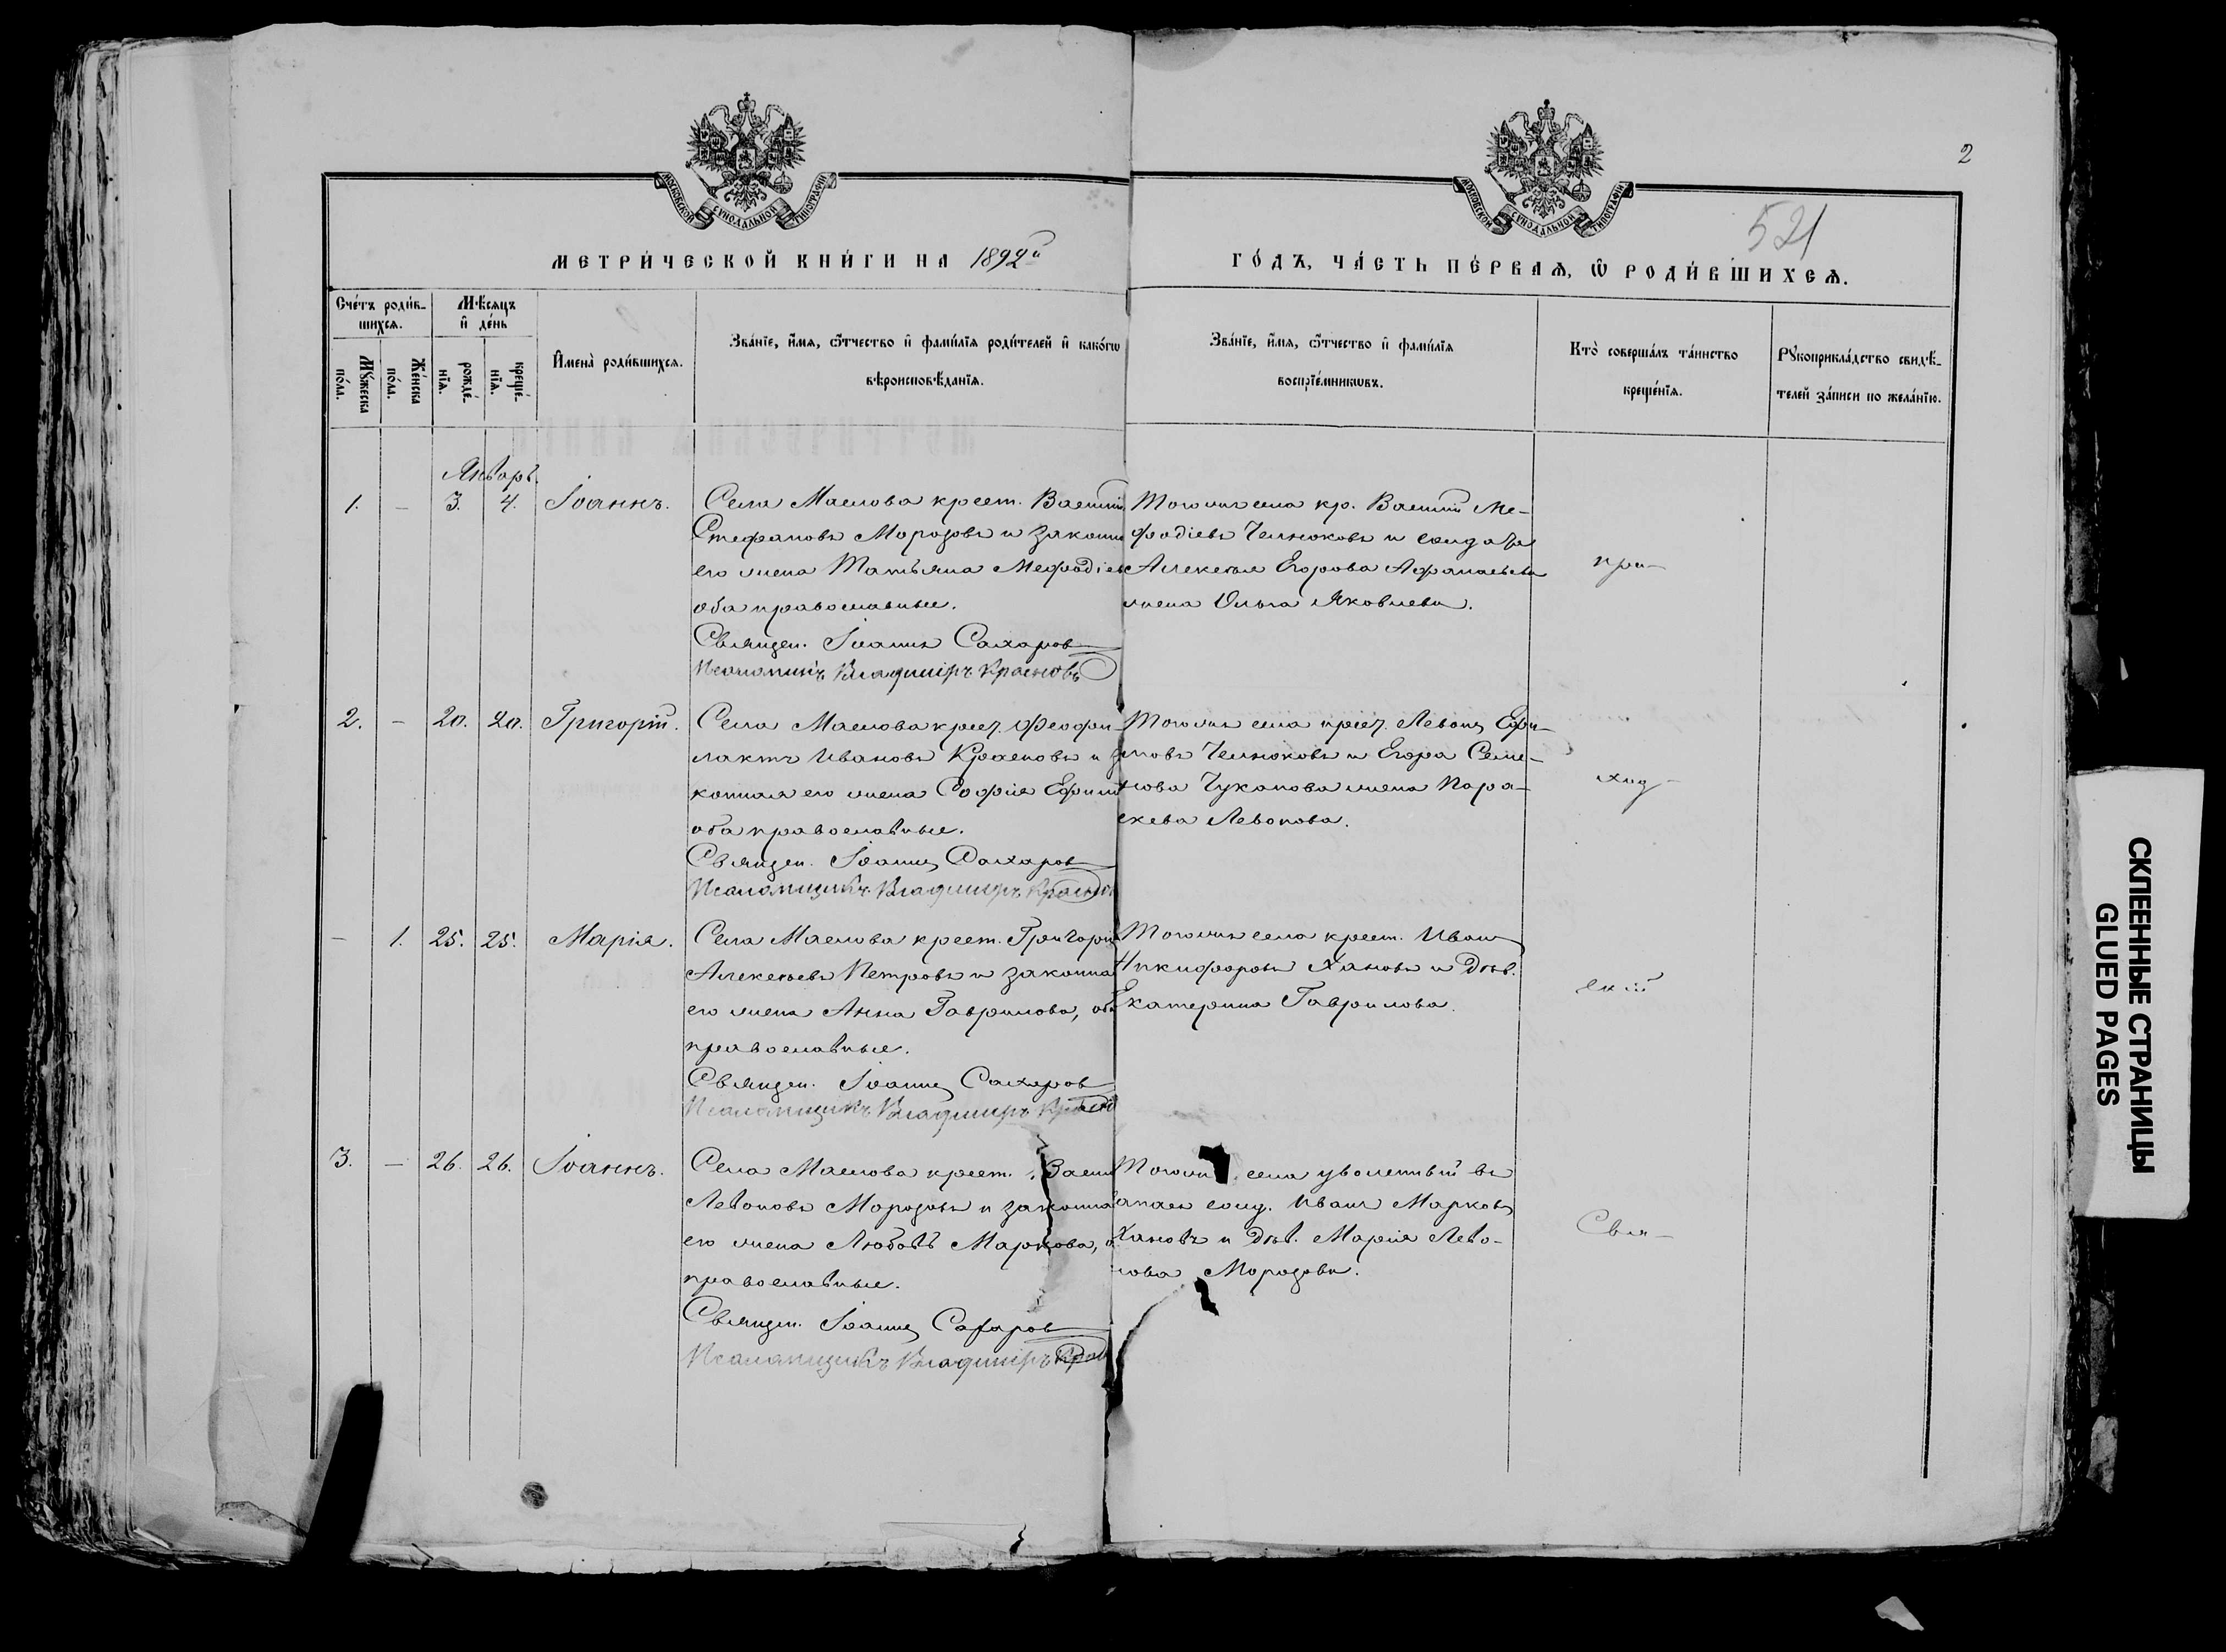 2
521
МОСКОВСКОЙ СѴНОДАЛЬНОЙ ТИПОГРАФІИ
МОСКОВСКОЙ СѴНОДАЛЬНОЙ ТИПОГРАФІИ
МЕТРИ́ЧЕСКОЙ КНИ́ГИ НА 1892й
ГО́ДЪ, ЧА́СТЬ ПЕ́РВАѦ, Ѿ РОДИ́ВШИХСѦ.
Сче́тъ роди́в-
шихсѧ.
Мꙋ́жеска
по́ла.
Же́нска
по́ла.
Мѣ́сѧцъ
и҆ де́нь
рожде́-
нїѧ.
креще́-
нїѧ.
И҆мена̀ роди́вшихсѧ.
Зва́нїе, и҆́мѧ, ѻ҆́тчество и҆ фамѝлїѧ роди́телей и҆ како́гѡ
вѣроисповѣ́данїѧ.
Зва́нїе, и҆́мѧ, ѻ҆́тчество и҆ фамѝлїѧ
воспрїе́мникѡвъ.
Кто̀ соверша́лъ та́инство
креще́нїѧ.
Рꙋкоприкла́дство свидѣ́-
телей за́писи по жела́нїю.
Январь.
1. – 3. 4. Іоаннъ.
Села Маслова крест. Василій
Стефановъ Морозовъ и законн
его жена Татьяна Мефодіев
оба православные.
Священ. Іоаннъ Сахаров
Псаломщикъ Владиміръ Красновъ
Тогоже села кр. Василій Ме-
фодіевъ Челноковъ и солдата
Алексѣя Егорова Афанасьева
жена Ольга Яковлева.
при-
2. – 20. 20. Григорій.
Села Маслова крест. Феофи-
лактъ Ивановъ Красновъ и за
конная его жена Софія Ефим
оба православные.
Священ. Іоаннъ Сахаров
Псаломщикъ Владиміръ Красно
Тогоже села крест. Левонъ Ефи-
мовъ Челноковъ и Егора Семе-
нова Чуканова жена Пара-
скева Левонова.
ход-
– 1. 25. 25. Марія.
Села Маслова крест. Григорій
Алексѣевъ Петровъ и законна
его жена Анна Гаврилова, оба
православные.
Священ. Іоаннъ Сахаров
Псаломщикъ Владиміръ Красно
Тогоже села крест. Иванъ
Никифоровъ Хановъ и Дѣв.
Екатерина Гаврилова.
скій
3. – 26. 26. Іоаннъ.
Села Маслова крест. Васил
Левоновъ Морозовъ и законна
его жена Любовь Маркова, о
православные.
Священ. Іоаннъ Сахаров
Псаломщикъ Владиміръ Крас
Тогоже села уволенный въ
запасъ солд. Иванъ Марковъ
Хановъ и Дѣв. Марія Лево-
нова Морозова.
Свя-
СКЛЕЕННЫЕ СТРАНИЦЫ
GLUED PAGES